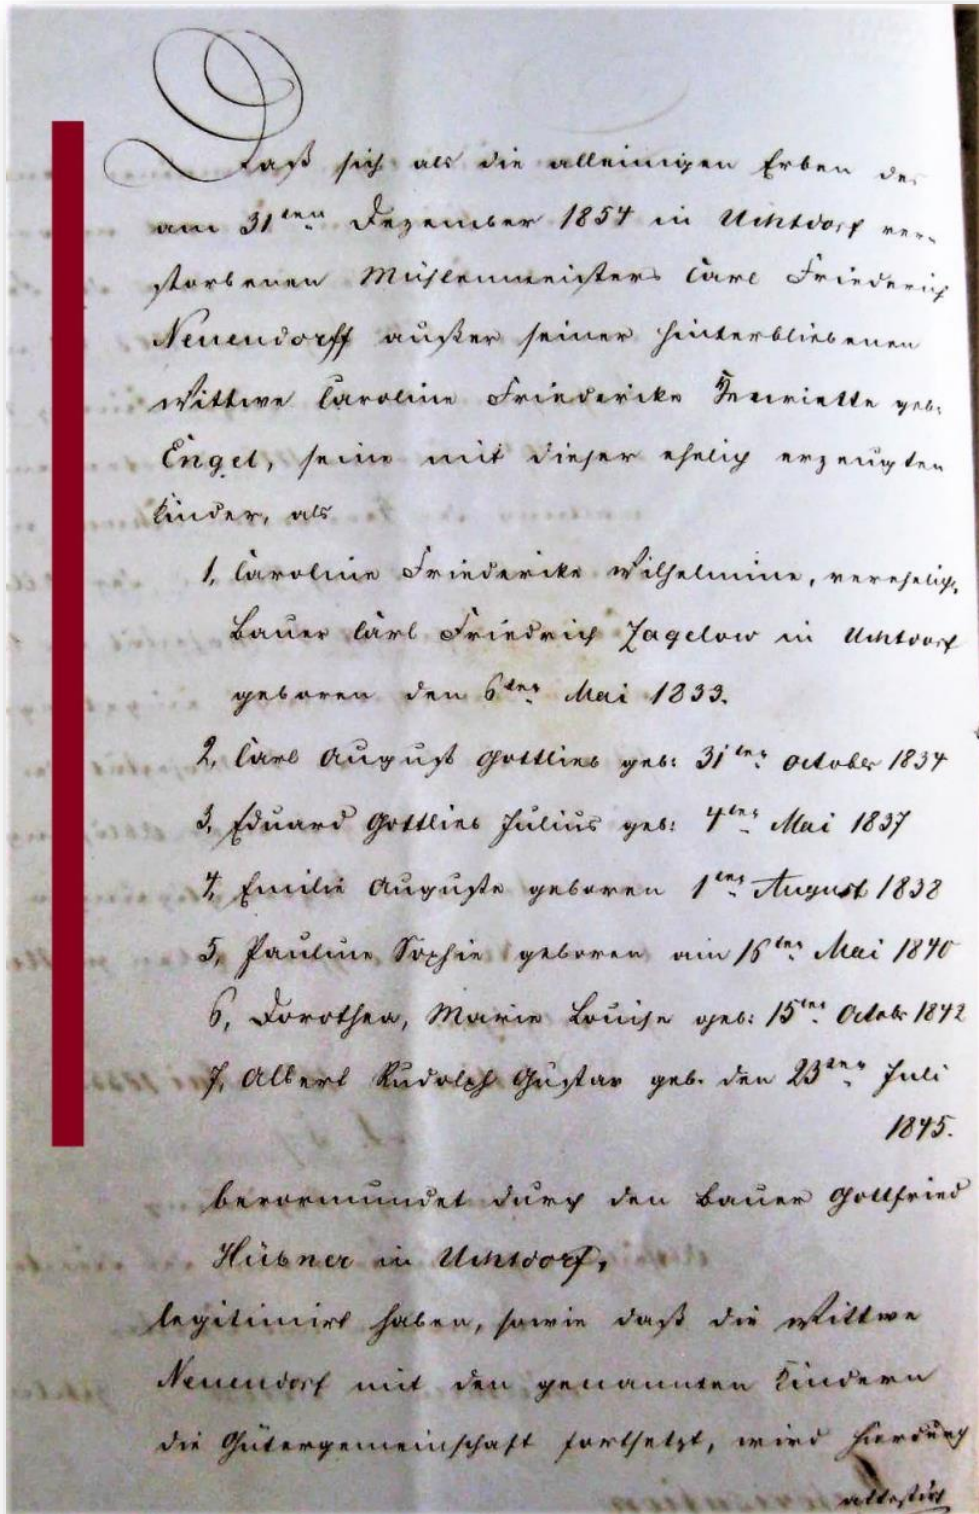 Daß sich als die alleinigen Erben des
am 31ten Dezember 1854 in Uchtdorf ver-
storbenen Mühlenmeisters Carl Friederich
Neuendorff außer seiner hinterbliebenen
Wittwe Caroline Friedericke Henriette geb:
Engel, seine mit dieser ehelich erzeugten
Kinder, als
1, Caroline Friedericke Wilhelmine, verehelicht.
Bauer Carl Friedrich Zagelow in Uchtdorf
geboren den 6ten Mai 1833.
2, Carl August Gottlieb geb: 31ten October 1834
3, Eduard Gottlieb Julius geb: 4ten Mai 1837
4, Emilie Auguste geboren 1ten August 1838
5, Pauline Sophie geboren am 16ten Mai 1840
6, Dorothea, Marie Louise geb: 15ten Octobr 1842
7, Albert Rudolph Gustav geb. den 23ten Juli
1845.
bevormundet durch den Bauer Gottfried
Hübner in Uchtdorf,
legitimirt haben, sowie daß die Wittwe
Neuendorf mit den genannten Kindern
die Gütergemeinschaft fortsetzt, wird hierdurch
attestirt